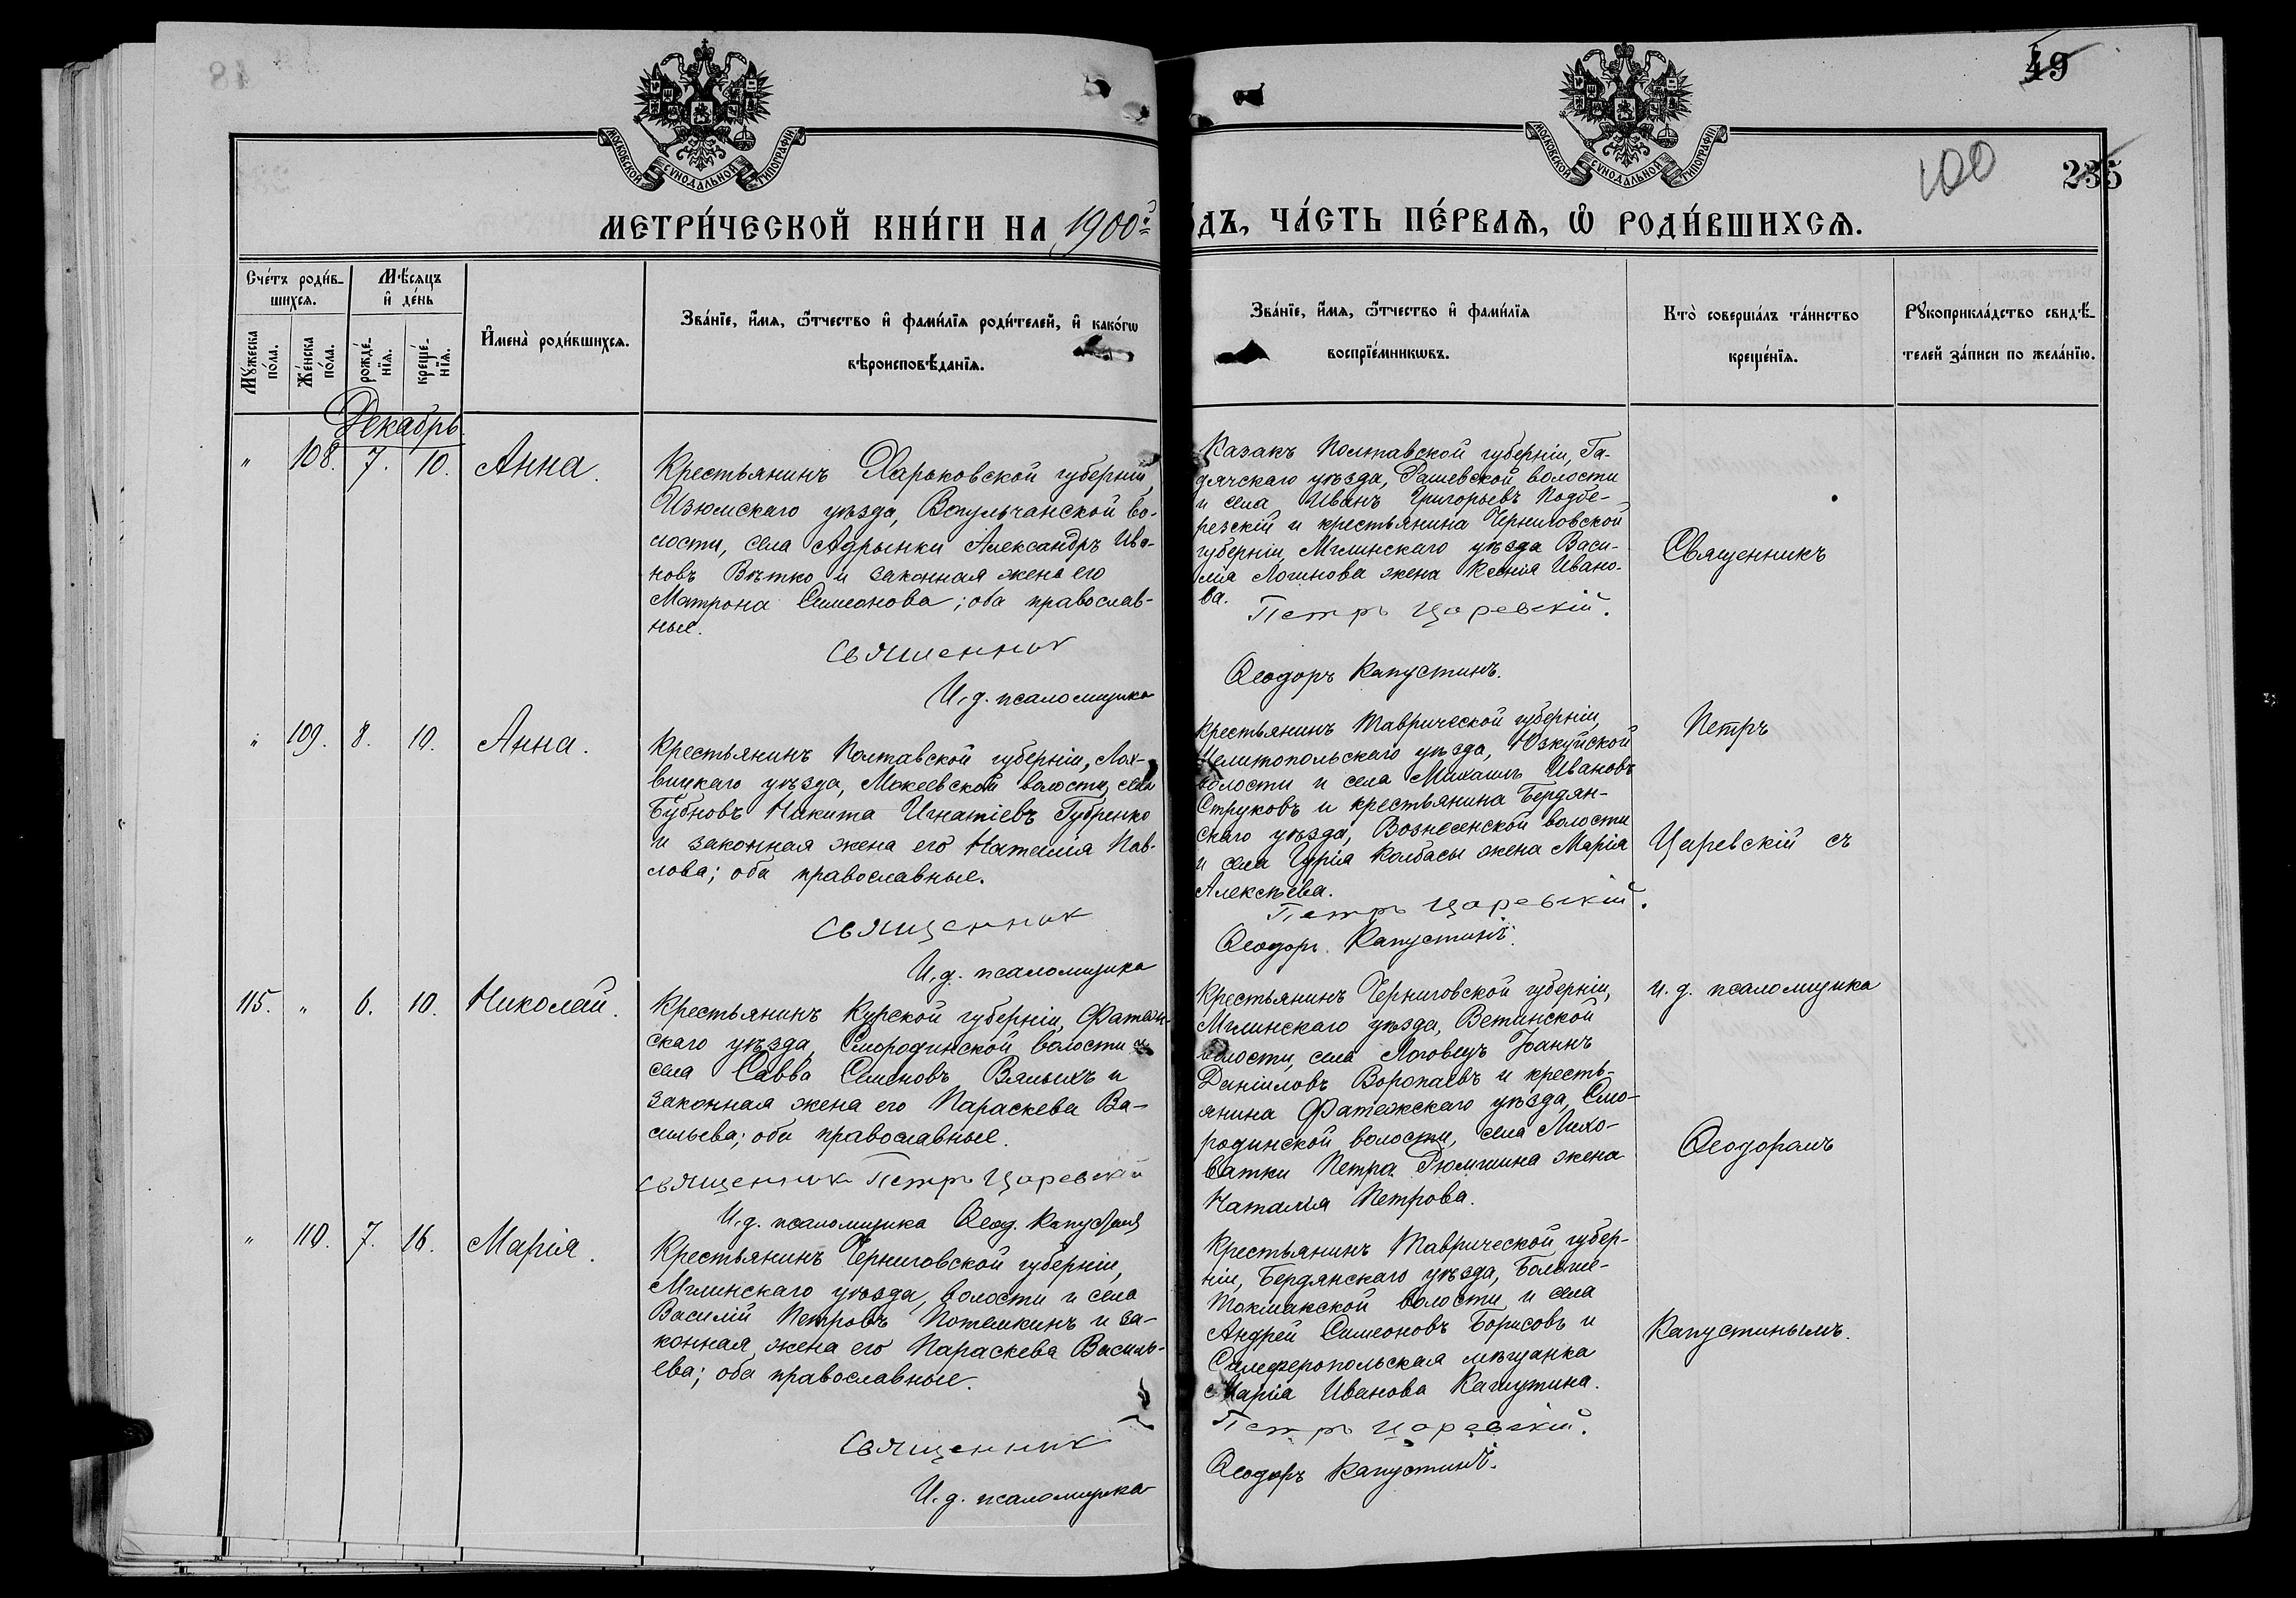 49
100
235
МОСКОВСКОЙ СѴНОДАЛЬНОЙ ТИПОГРАФІИ
МОСКОВСКОЙ СѴНОДАЛЬНОЙ ТИПОГРАФІИ
МЕТРИ́ЧЕСКОЙ КНИ́ГИ НА 1900й
ДЪ, ЧА́СТЬ ПЕ́РВАѦ, Ѡ҆ РОДИ́ВШИХСѦ.
Сче́тъ роди́в-
шихсѧ.
Мѣ́сѧцъ
и҆ де́нь
Мꙋ́жеска
по́ла.
Же́нска
по́ла.
рожде́-
нїѧ.
креще́-
нїѧ.
И҆мена̀ роди́вшихсѧ.
Зва́нїе, и҆́мѧ, ѻ҆́тчество и҆ фами́лїѧ роди́телей, и҆ како́гѡ
вѣроисповѣ́данїѧ.
Зва́нїе, и҆́мѧ, ѻ҆́тчество и҆ фами́лїѧ
воспрїе́мникѡвъ.
Кто̀ соверша́лъ та́инство
креще́нїѧ.
Рꙋкоприкла́дство свидѣ́-
телей за́писи по жела́нїю.
Декабрь
" 108. 7. 10. Анна.
Крестьянинъ Харьковской губерніи,
Изюмскаго уѣзда, во-
лости, села Александръ Ива-
новъ Вѣтко и законная жена его
Матрона Симеонова; оба православ-
ные.
Священник
И. д. псаломщика
Казакъ Полтавской губерніи, Га-
дячскаго уѣзда, Рашевской волости
и села Иванъ Григорьевъ Подбе-
резскій и крестьянина Черниговской
губерніи, Мглинскаго уѣзда Васи-
лія Логинова жена Ксенія Ивано-
ва.
Петръ Царевскій.
Ѳеодоръ Капустинъ.
Священникъ
" 109. 8. 10. Анна.
Крестьянинъ Полтавской губерніи, Лох-
вицкаго уѣзда, Мокеевской волости, села
Бубновъ Никита Игнатіевъ Губренко
и законная жена его Наталія Пав-
лова; оба православные.
Священник
И. д. псаломщика
Крестьянинъ Таврической губерніи,
Мелитопольскаго уѣзда, Юзкуйской
волости и села Михаилъ Ивановъ
Струковъ и крестьянина Бердян-
скаго уѣзда, Вознесенской волости
и села Гурія Колбасы жена Марія
Алексѣева.
Петръ Царевскій.
Ѳеодоръ Капустинъ.
Петръ
Царевскій съ
115. " 6. 10. Николай.
Крестьянинъ Курской губерніи, Фатеж-
скаго уѣзда, Смородинской волости и
села Савва Семеновъ Вялыхъ и
законная жена его Параскева Ва-
сильева; оба православные.
Священник Петръ Царевскій
И. д. псаломщика Ѳеод. Капустинъ
Крестьянинъ Черниговской губерніи,
Мглинскаго уѣзда, Ветинской
волости, села Логовецъ Іоаннъ
Даніиловъ Воропаевъ и кресть-
янина Фатежскаго уѣзда, Смо-
родинской волости, села Лихо-
ватки Петра Рюмшина жена
Наталія Петрова.
и. д. псаломщика
Ѳеодоромъ
" 110. 7. 16. Марія.
Крестьянинъ Черниговской губерніи,
Мглинскаго уѣзда, волости и села
Василій Петровъ Потемкинъ и за-
конная жена его Параскева Василь-
ева; оба православные.
Священник
И. д. псаломщика
Крестьянинъ Таврической губер-
ніи, Бердянскаго уѣзда, Больше-
Токмакской волости и села
Андрей Симеоновъ Борисовъ и
Симферопольская мѣщанка
Марія Иванова Кашутина.
Петръ Царевскій.
Ѳеодоръ Капустинъ.
Капустинымъ.